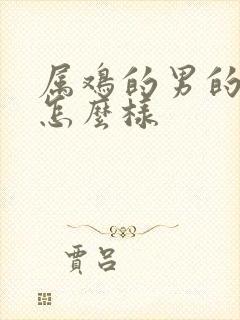 属鸡的男的
怎麼樣
賈吕